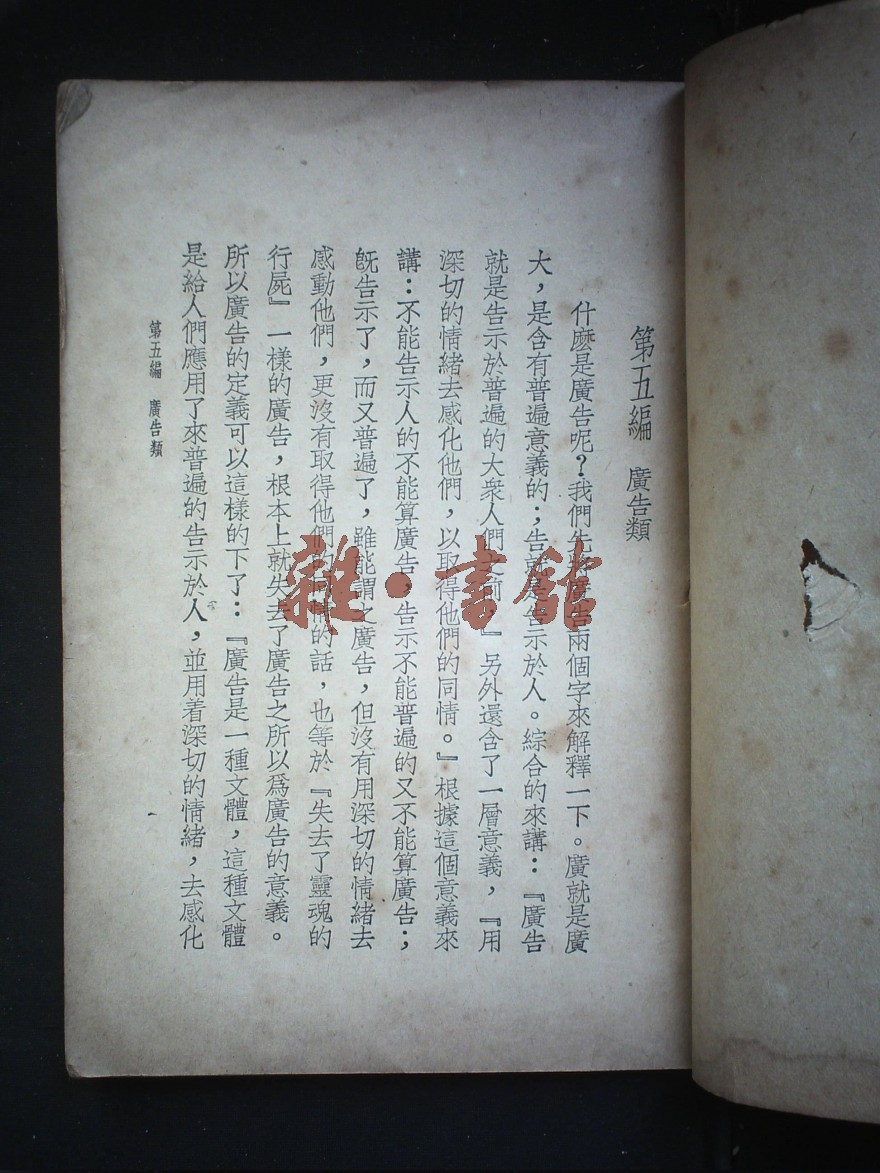 第五編　廣告類
什麽是廣告呢？我們先 廣告兩個字來解釋一下。廣就是廣
大，是含有普遍意義的；告就是告示於人。綜合的來講：『廣告
就是告示於普遍的大衆人們 前。』另外還含了一層意義，『用
深切的情緒去感化他們，以取得他們的同情。』根據這個意義來
講：不能告示人的不能算廣告，告示不能普遍的又不能算廣告；
旣告示了，而又普遍了，雖能謂之廣告，但沒有用深切的情緒去
感動他們，更沒有取得他們的同情的話，也等於『失去了靈魂的
行屍』一樣的廣告，根本上就失去了廣告之所以爲廣告的意義。
所以廣告的定義可以這樣的下了：『廣告是一種文體，這種文體
是給人們應用了來普遍的告示於人，並用着深切的情緒，去感化
第五編　廣告類
雜·書館